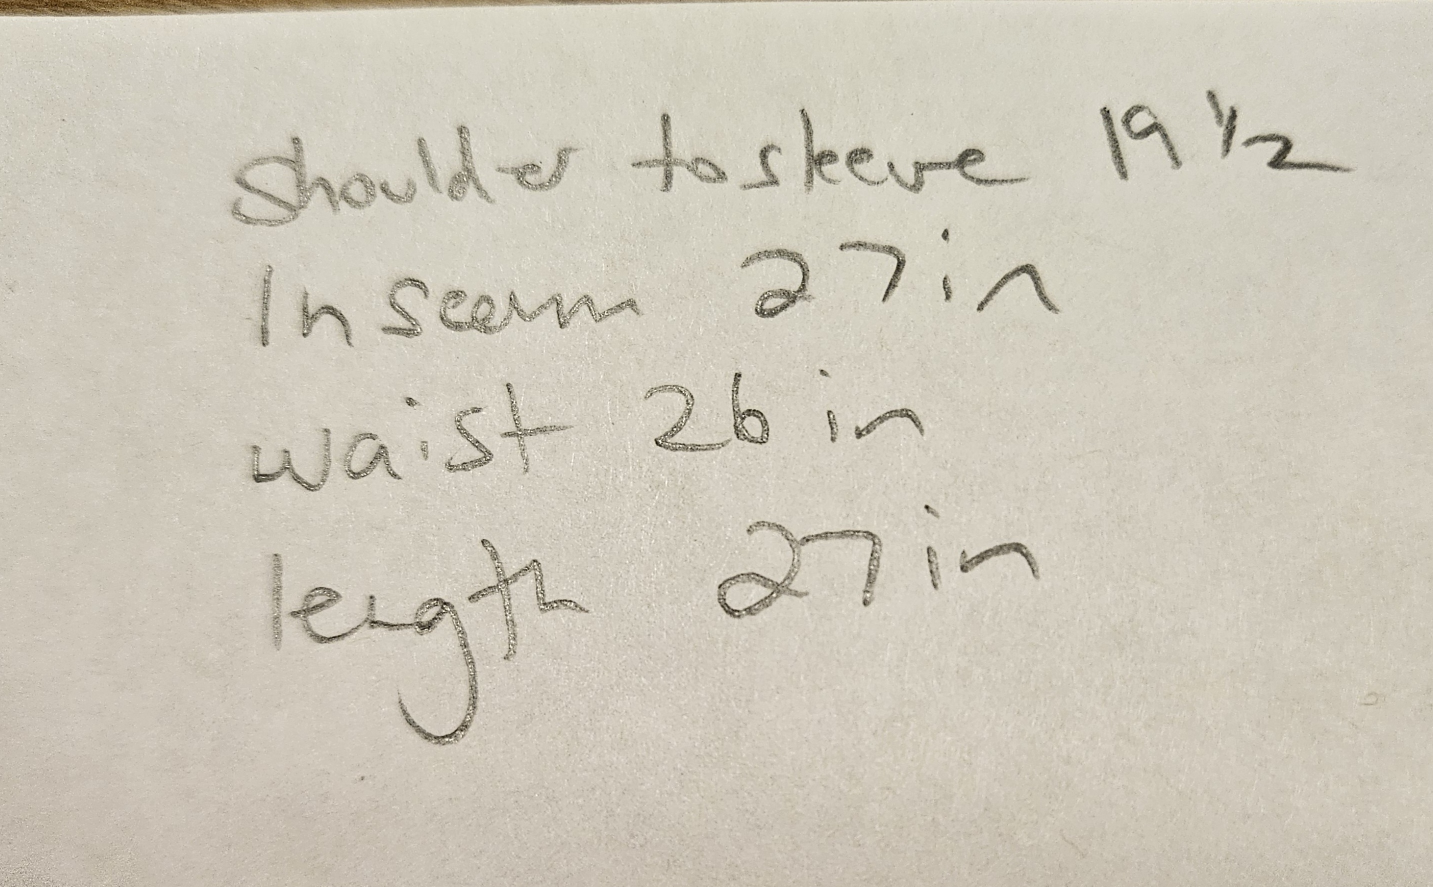 Shoulder to sleeve 19 1/2
Inseam 27 in
waist 26 in
length 27 in